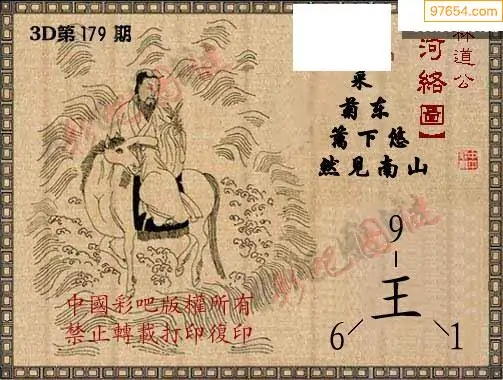 97654.com
3D第 179 期
林道公
河絡圖】
采
菊东
篱下悠
然见南山
9
王
6 1
中國彩吧版權所有
禁止轉載打印復印